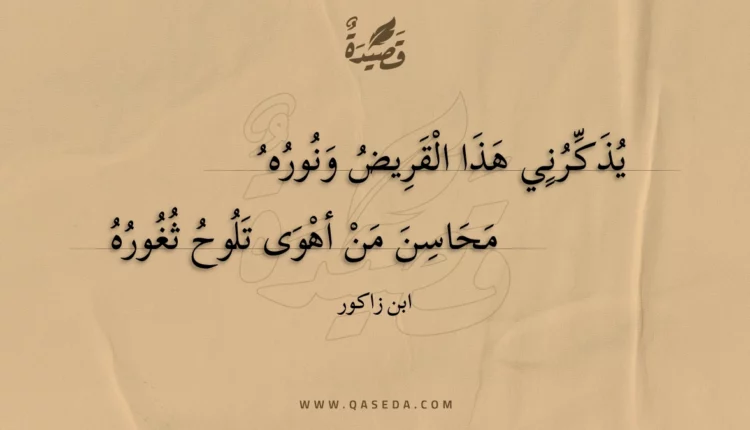 قَصِيدَةٌ
يُذَكِّرُنِي هَذَا الْقَرِيضُ وَنُورُهُ
مَحَاسِنَ مَنْ أهْوَى تَلُوحُ ثُغُورُهُ
ابن زاكور
WWW.QASEDA.COM